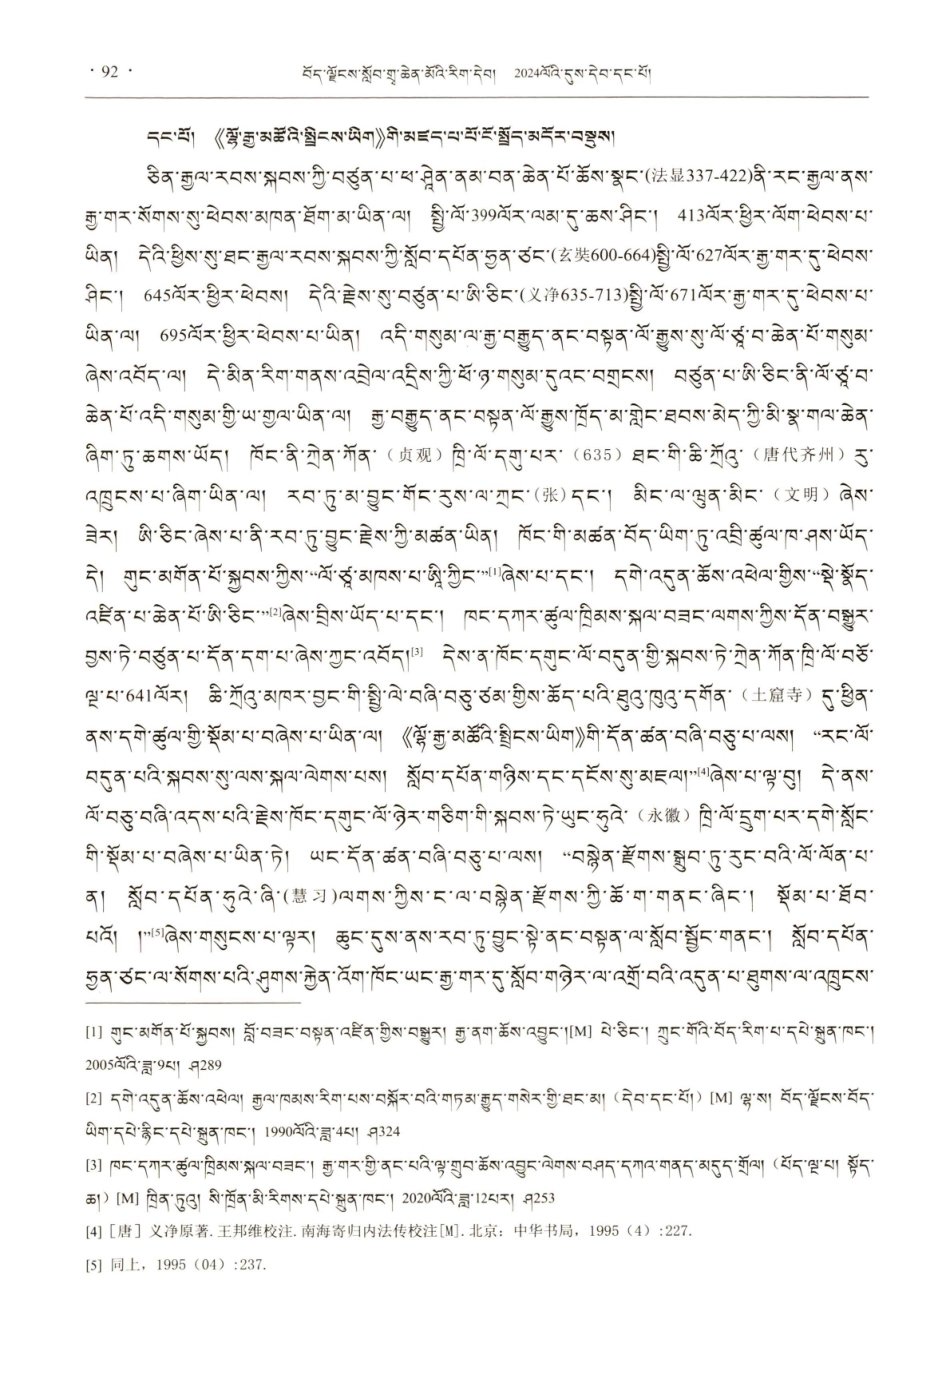 · 92 ·
བོད་ལྗོངས་སློབ་གྲྭ་ཆེན་མོའི་རིག་དེབ། 2024ལོའི་དུས་དེབ་དང་པོ།
དང་པོ། 《ལྷོ་རྒྱ་མཚོའི་སྤྲིངས་ཡིག》གི་མཛད་པ་པོ་ངོ་སྤྲོད་མདོར་བསྡུས།
ཅིན་རྒྱལ་རབས་སྐབས་ཀྱི་བཙུན་པ་ཕ་ཤྭེན་ནམ་བན་ཆེན་པོ་ཆོས་སྣང་(法显337-422)ནི་རང་རྒྱལ་ནས་
རྒྱ་གར་སོགས་སུ་ཕེབས་མཁན་ཐོག་མ་ཡིན་ལ། སྤྱི་ལོ་399ལོར་ལམ་དུ་ཆས་ཤིང་། 413ལོར་ཕྱིར་ལོག་ཕེབས་པ་
ཡིན། དེའི་ཕྱིས་སུ་ཐང་རྒྱལ་རབས་སྐབས་ཀྱི་སློབ་དཔོན་ཧྱན་ཙང་(玄奘600-664)སྤྱི་ལོ་627ལོར་རྒྱ་གར་དུ་ཕེབས་
ཤིང་། 645ལོར་ཕྱིར་ཕེབས། དེའི་རྗེས་སུ་བཙུན་པ་ཨི་ཅིང་(义净635-713)སྤྱི་ལོ་671ལོར་རྒྱ་གར་དུ་ཕེབས་པ་
ཡིན་ལ། 695ལོར་ཕྱིར་ཕེབས་པ་ཡིན། འདི་གསུམ་ལ་རྒྱ་བརྒྱུད་ནང་བསྟན་ལོ་རྒྱུས་སུ་ལོ་ཙཱ་བ་ཆེན་པོ་གསུམ་
ཞེས་འབོད་ལ། དེ་མིན་རིག་གནས་འབྲེལ་འདྲིས་ཀྱི་ཕོ་ཉ་གསུམ་དུའང་བགྲངས། བཙུན་པ་ཨི་ཅིང་ནི་ལོ་ཙཱ་བ་
ཆེན་པོ་འདི་གསུམ་གྱི་ཡ་གྱལ་ཡིན་ལ། རྒྱ་བརྒྱུད་ནང་བསྟན་ལོ་རྒྱུས་ཁྲོད་མ་གླེང་ཐབས་མེད་ཀྱི་མི་སྣ་གལ་ཆེན་
ཞིག་ཏུ་ཆགས་ཡོད། ཁོང་ནི་ཀྲེན་ཀོན་（贞观）ཁྲི་ལོ་དགུ་པར་（635）ཐང་གི་ཆི་ཀྲོའུ་（唐代齐州）རུ་
འཁྲུངས་པ་ཞིག་ཡིན་ལ། རབ་ཏུ་མ་བྱུང་གོང་རུས་ལ་ཀྲང་(张)དང་། མིང་ལ་ལྷུན་མིང་（文明）ཞེས་
ཟེར། ཨི་ཅིང་ཞེས་པ་ནི་རབ་ཏུ་བྱུང་རྗེས་ཀྱི་མཚན་ཡིན། ཁོང་གི་མཚན་བོད་ཡིག་ཏུ་འབྲི་ཚུལ་ཁ་ཤས་ཡོད་
དེ། གུང་མགོན་པོ་སྐྱབས་ཀྱིས་“ལོ་ཙཱ་མཁས་པ་ཨཱི་ཀྱིང་”[1]ཞེས་པ་དང་། དགེ་འདུན་ཆོས་འཕེལ་གྱིས་“སྡེ་སྣོད་
འཛིན་པ་ཆེན་པོ་ཨི་ཅིང་”[2]ཞེས་བྲིས་ཡོད་པ་དང་། ཁང་དཀར་ཚུལ་ཁྲིམས་སྐལ་བཟང་ལགས་ཀྱིས་དོན་བསྒྱུར་
བྱས་ཏེ་བཙུན་པ་དོན་དག་པ་ཞེས་ཀྱང་འབོད།[3] དེས་ན་ཁོང་དགུང་ལོ་བདུན་གྱི་སྐབས་ཏེ་ཀྲེན་ཀོན་ཁྲི་ལོ་བཅོ་
ལྔ་པ་641ལོར། ཆི་ཀྲོའུ་མཁར་བྱང་གི་སྤྱི་ལེ་བཞི་བཅུ་ཙམ་གྱིས་ཆོད་པའི་ཐུའུ་ཁུའུ་དགོན་（土窟寺）དུ་ཕྱིན་
ནས་དགེ་ཚུལ་གྱི་སྡོམ་པ་བཞེས་པ་ཡིན་ལ། 《ལྷོ་རྒྱ་མཚོའི་སྤྲིངས་ཡིག》གི་དོན་ཚན་བཞི་བཅུ་པ་ལས། “རང་ལོ་
བདུན་པའི་སྐབས་སུ་ལས་སྐལ་ལེགས་པས། སློབ་དཔོན་གཉིས་དང་དངོས་སུ་མཇལ།”[4]ཞེས་པ་ལྟ་བུ། དེ་ནས་
ལོ་བཅུ་བཞི་འདས་པའི་རྗེས་ཁོང་དགུང་ལོ་ཉེར་གཅིག་གི་སྐབས་ཏེ་ཡུང་ཧུའེ་（永徽）ཁྲི་ལོ་དྲུག་པར་དགེ་སློང་
གི་སྡོམ་པ་བཞེས་པ་ཡིན་ཏེ། ཡང་དོན་ཚན་བཞི་བཅུ་པ་ལས། “བསྙེན་རྫོགས་སྒྲུབ་ཏུ་རུང་བའི་ལོ་ལོན་པ་
ན། སློབ་དཔོན་ཧུའེ་ཞི་(慧习)ལགས་ཀྱིས་ང་ལ་བསྙེན་རྫོགས་ཀྱི་ཆོ་ག་གནང་ཞིང་། སྡོམ་པ་ཐོབ་
པའོ། །”[5]ཞེས་གསུངས་པ་ལྟར། ཆུང་དུས་ནས་རབ་ཏུ་བྱུང་སྟེ་ནང་བསྟན་ལ་སློབ་སྦྱོང་གནང་། སློབ་དཔོན་
ཧྱན་ཙང་ལ་སོགས་པའི་ཤུགས་རྐྱེན་འོག་ཁོང་ཡང་རྒྱ་གར་དུ་སློབ་གཉེར་ལ་འགྲོ་བའི་འདུན་པ་ཐུགས་ལ་འཁྲུངས་
[1] གུང་མགོན་པོ་སྐྱབས། བློ་བཟང་བསྟན་འཛིན་གྱིས་བསྒྱུར། རྒྱ་ནག་ཆོས་འབྱུང་།[M] པེ་ཅིང་། ཀྲུང་གོའི་བོད་རིག་པ་དཔེ་སྐྲུན་ཁང་།
2005ལོའི་ཟླ་9པ། ཤ289
[2] དགེ་འདུན་ཆོས་འཕེལ། རྒྱལ་ཁམས་རིག་པས་བསྐོར་བའི་གཏམ་རྒྱུད་གསེར་གྱི་ཐང་མ།（དེབ་དང་པོ།）[M] ལྷ་ས། བོད་ལྗོངས་བོད་
ཡིག་དཔེ་རྙིང་དཔེ་སྐྲུན་ཁང་། 1990ལོའི་ཟླ་4པ། ཤ324
[3] ཁང་དཀར་ཚུལ་ཁྲིམས་སྐལ་བཟང་། རྒྱ་གར་གྱི་ནང་པའི་ལྟ་གྲུབ་ཆོས་འབྱུང་ལེགས་བཤད་དཀའ་གནད་མདུད་གྲོལ།（པོད་ལྔ་པ། སྟོད་
ཆ།）[M] ཁྲིན་ཏུའུ། སི་ཁྲོན་མི་རིགས་དཔེ་སྐྲུན་ཁང་། 2020ལོའི་ཟླ་12པར། ཤ253
[4]［唐］义净原著. 王邦维校注. 南海寄归内法传校注[M]. 北京：中华书局，1995（4）:227.
[5] 同上，1995（04）:237.